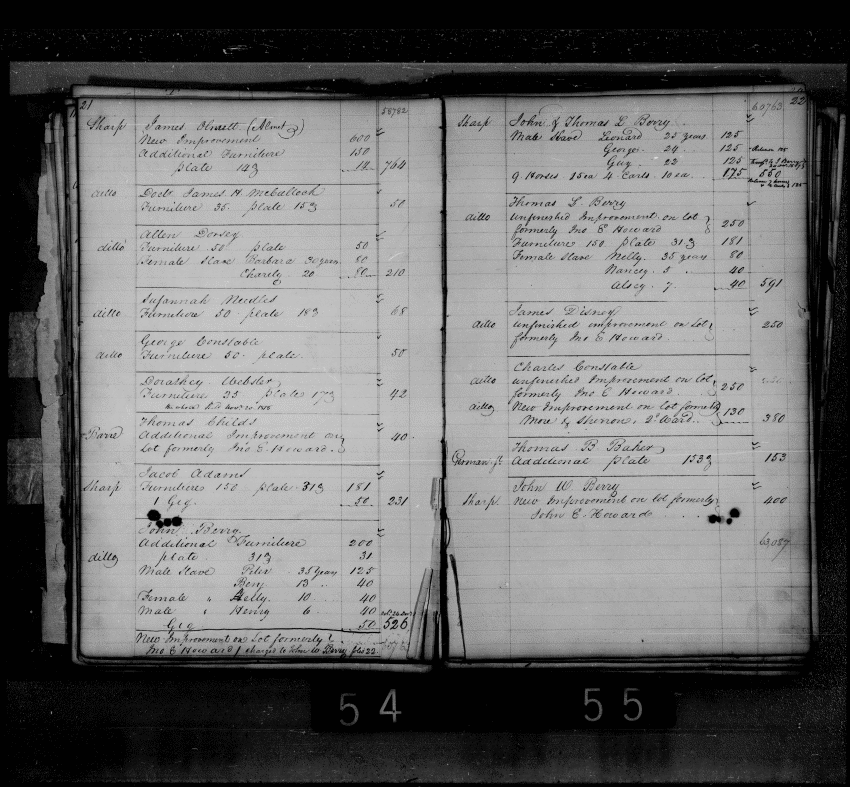 21
58782
Sharp James Olnett (Alnut)
New Improvement 600
Additional Furniture 150
plate 14℥ 14 764
ditto Doctr James H McCulloch
Furniture 35. plate 15℥ 50
Allen Dorsey
ditto Furniture 50 plate 50
Female Slave Barbara 30 years 80
Charity 20 80 210
Susannah Needles
ditto Furniture 50 plate 18℥ 68
George Constable
ditto Furniture 50. plate 50
Dorathey Webster
Furniture 25 plate 17℥ 42
Thomas Childs
Barre Additional Improvement on 40
Lot formerly Jno E Howard
Jacob Adams
Sharp Furnitures 150 plate 31℥ 181
1 Gig 50 231
John Berry
Additional Furniture 200
ditto plate 31℥ 31
Male Slave Peter 35 Years 125
Bery 13 40
Female " Helly 10 40
Male " Henry 6 40
Gig 50 526
New Improvement on Lot formerly
Jno E Howard charged to John W Berry folo 22
22
60763
Sharp John & Thomas L Berry
Male Slave Leonard 25 years 125
George 24 125
Guy 22 125
9 Horses 15 ea 4 Carts 10 ea 175 550
Thomas L Berry
ditto unfinished Improvement on lot
formerly Jno E Howard 250
Furniture 150 plate 31℥ 181
Female Slave Nelly 35 years 80
Nancey 5 40
Alsey 7 40 591
James Disney
ditto unfinished improvement on Lot 250
formerly Jno E Howard
Charles Constable
ditto unfinished Improvement on Lot
formerly Jno E Howard 250
ditto New Improvement on Lot formerly 130
More & 2d Ward 380
Thomas B Baker
German St Additional plate 153℥ 153
John W Berry
Sharp New Improvement on lot formerly 400
John E Howard
63,087
54
55